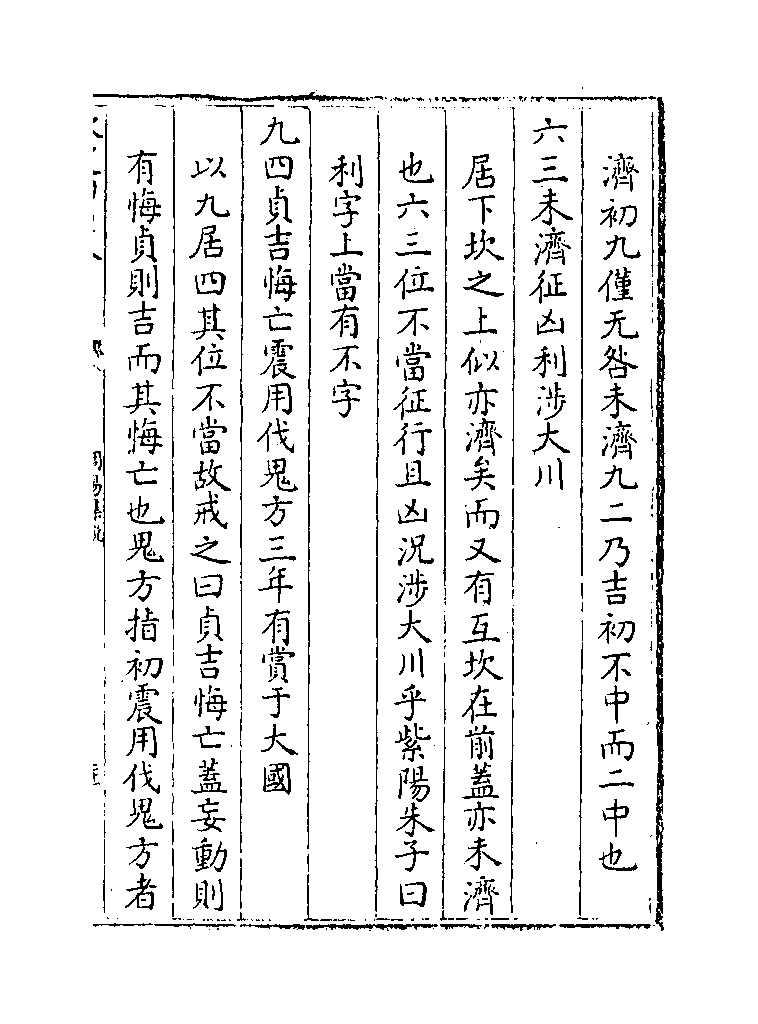 濟初九僅无咎未濟九二乃吉初不中而二中也
六三未濟征凶利涉大川
居下坎之上似亦濟矣而又有互坎在前蓋亦未濟
也六三位不當征行且凶況涉大川乎紫陽朱子曰
利字上當有不字
九四貞吉悔亡震用伐鬼方三年有賞于大國
以九居四其位不當故戒之曰貞吉悔亡蓋妄動則
有悔貞則吉而其悔亡也鬼方指初震用伐鬼方者